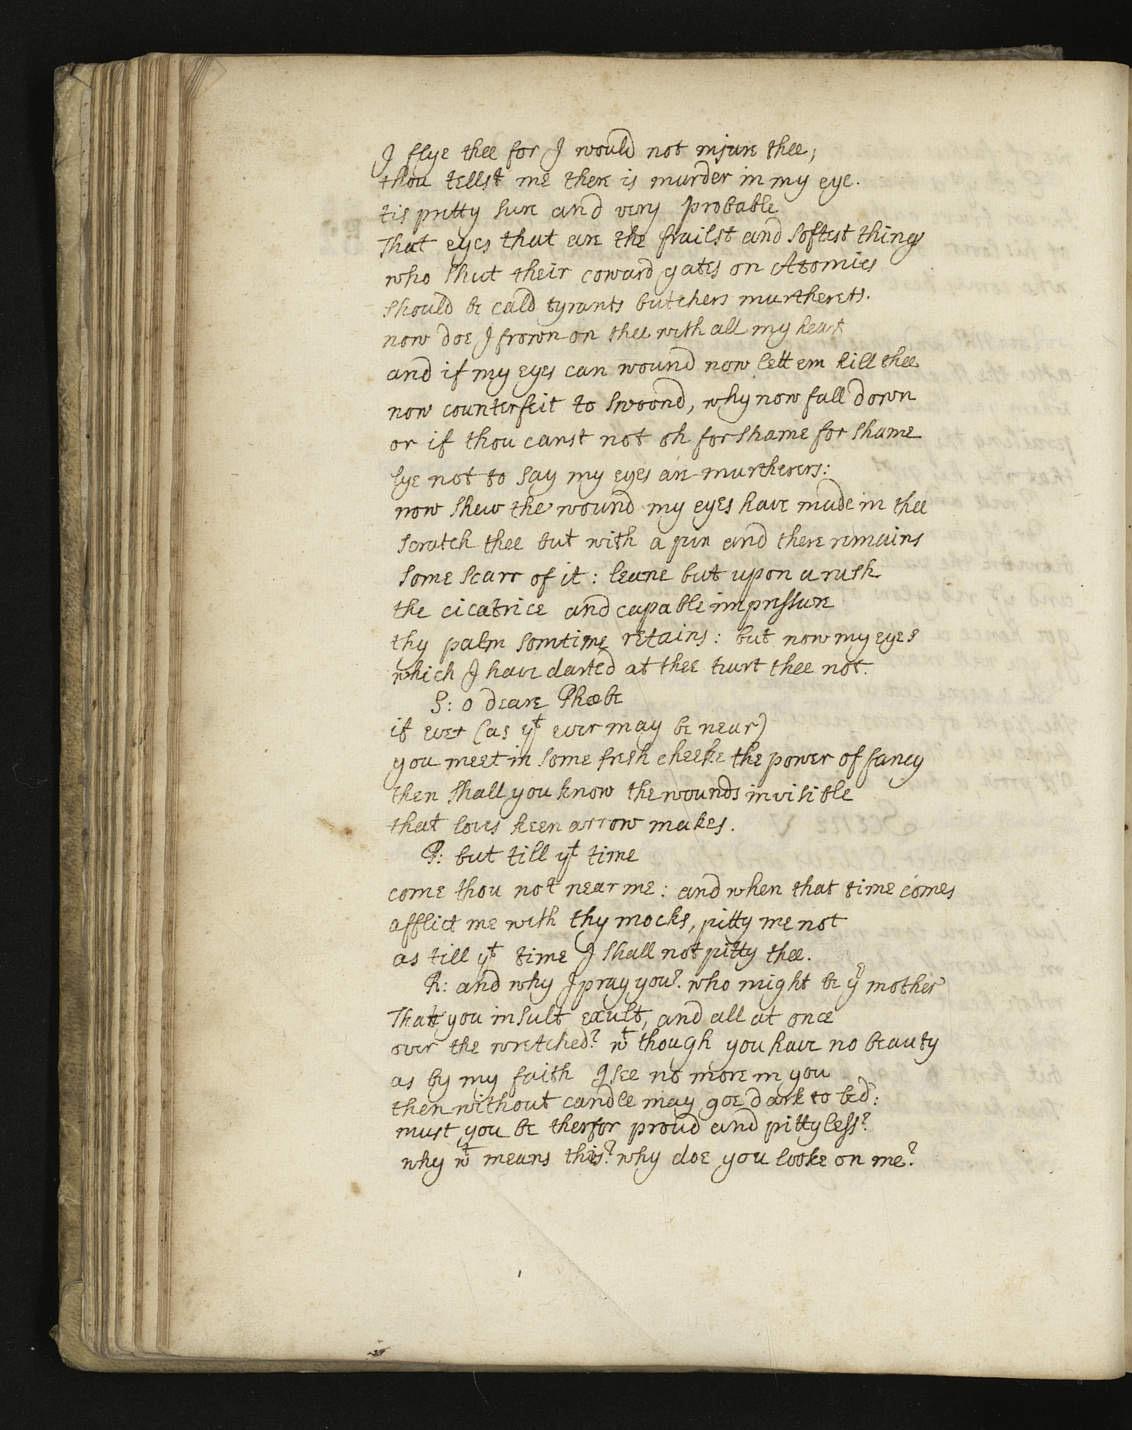 I flye thee for I would not injure thee;
thou tellst me there is murder in my eye.
tis pritty sure and very probable
That eyes that are the frailst and softest things
who shut their coward gates on Atomies
should be cald tyrants butchers murtherers.
now doe I frown on thee with all my heart
and if my eyes can wound now lett em kill thee
now counterfeit to swoond, why now fall down
or if thou canst not oh for shame for shame
lye not to say my eyes are murtherers:
now shew the wound my eyes have made in thee
scratch thee but with a pin and there remains
some scarr of it: leane but upon a rush
the cicatrice and capable impressure
thy palm somtime retains: but now my eyes
which I have darted at thee hurt thee not.
S: o deare Phœbe
if ever (as yt ever may be near)
you meet in some fresh cheeke the power of fancy
then shall you know the wounds invisible
that loves keen arrow makes.
P: but till yt time
come thou not near me: and when that time comes
afflict me with thy mocks, pitty me not
as till yt time I shall not pitty thee.
R: and why I pray you? who might be yr mother
That you insult exult, and all at once
over the wretched? wt though you have no beauty
as by my faith I see no more in you
then without candle may goe dark to bed:
must you be therfor proud and pittyless?
why wt means this? why doe you looke on me?